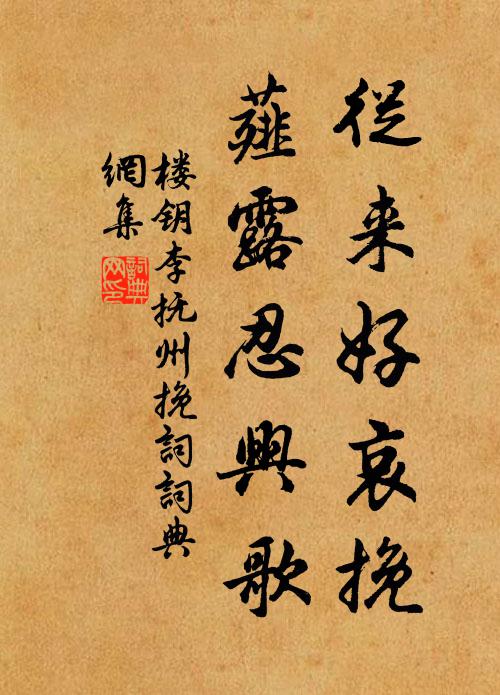 從来好哀挽
薤露忍興歌
楼钥李抚州挽詞詞典
網集
詞典
网印